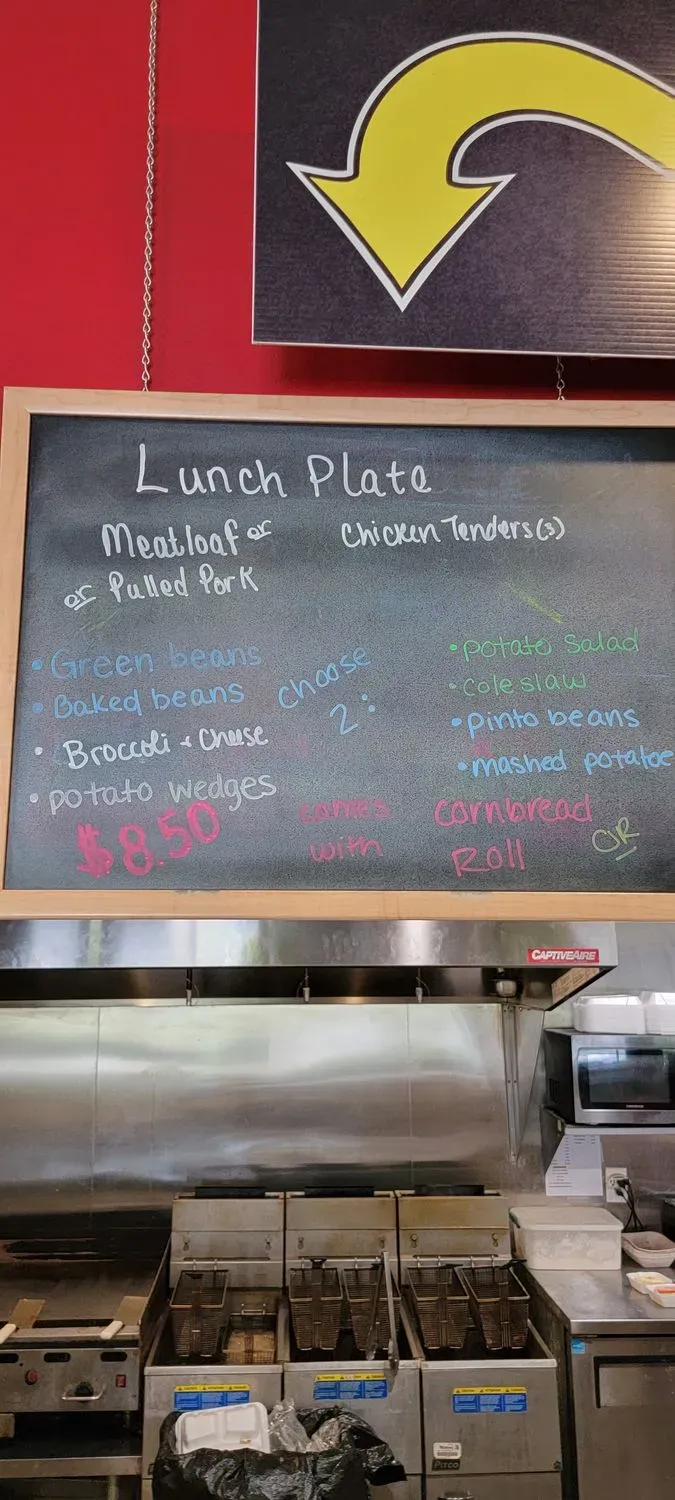 Lunch Plate
Meatloaf or
Chicken Tenders (3)
or Pulled Pork
• Green beans
• Baked beans
• Broccoli + Cheese
• potato wedges
choose
2:
• potato salad
• cole slaw
• pinto beans
• mashed potatoe
$8.50
comes
with
cornbread
OR
Roll
CAPTIVEAIRE
Pitco